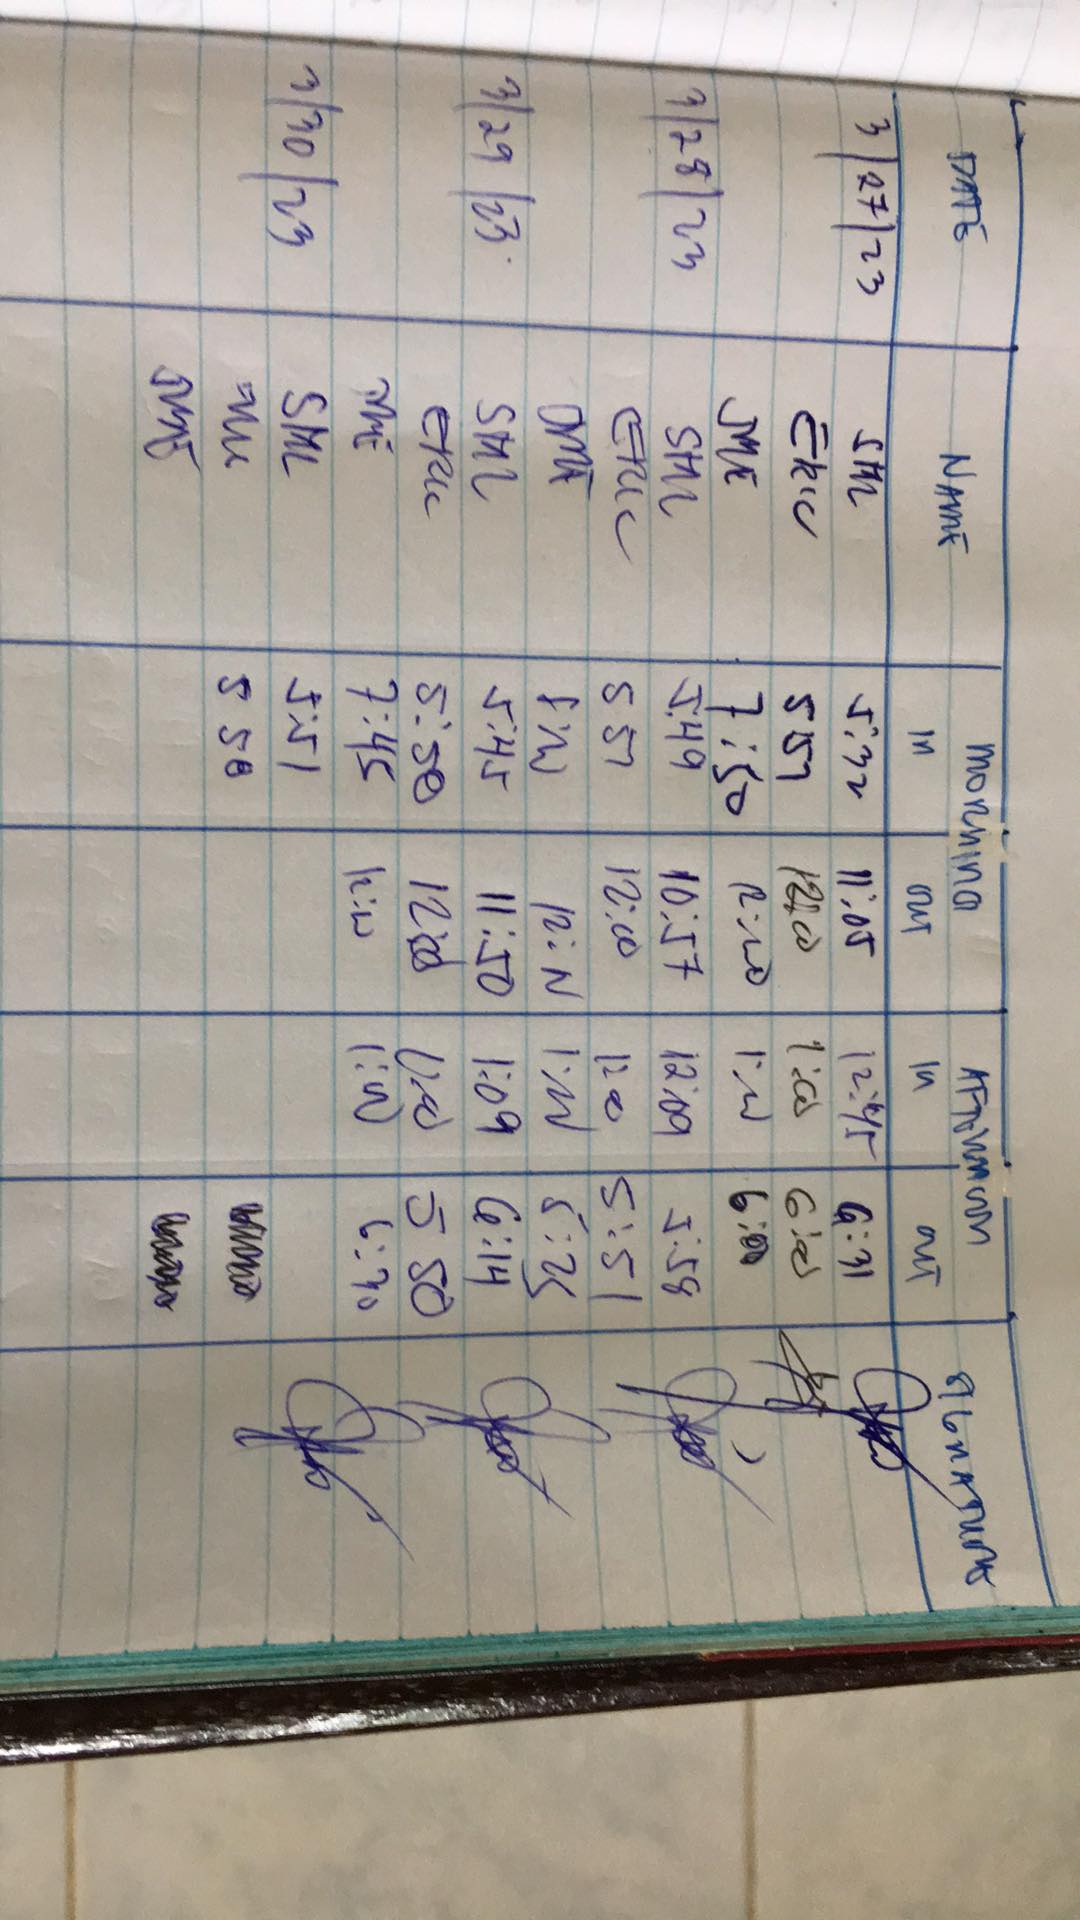 DATE NAME MORNING AFTERNOON SIGNATURE
IN OUT IN OUT
3/27/23 SML 5:32 11:05 12:45 6:31
ERIC 5 57 12:00 1:00 6:00
JME 7:50 12:00 1:00 6:00
3/28/23 SML 5:49 10:57 12:09 5:58
ERIC 5 57 12:00 1:00 5:51
JME 12:N 1:00 5:25
3/29/23 SML 5:45 11:50 1:09 6:14
ERIC 5:50 12:00 1:00 5 50
JME 7:45 12:00 1:00 6:30
3/30/23 SML 5:51
5 58
JME